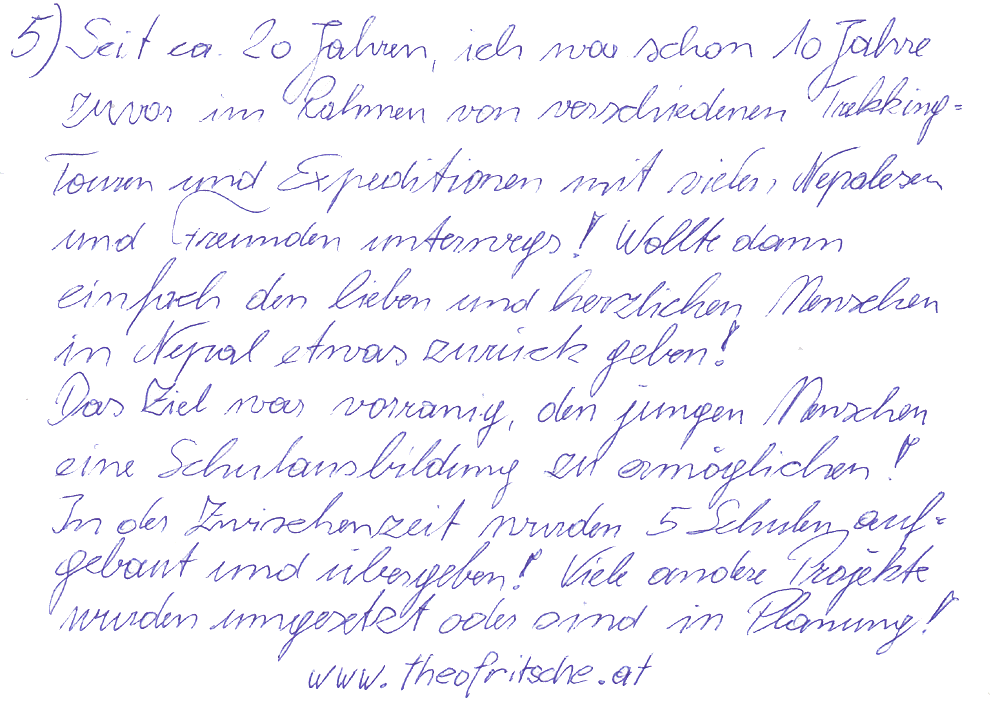 5) Seit ca. 20 Jahren, ich war schon 10 Jahre
zuvor im Rahmen von verschiedenen Trekking-
Touren und Expeditionen mit vielen Nepalesen
und Freunden unterwegs! Wollte dann
einfach den lieben und herzlichen Menschen
in Nepal etwas zurück geben!
Das Ziel war vorranig, den jungen Menschen
eine Schulausbildung zu ermöglichen!
In der Zwischenzeit wurden 5 Schulen auf-
gebaut und übergeben! Viele andere Projekte
wurden umgesetzt oder sind in Planung!
www.theofritsche.at